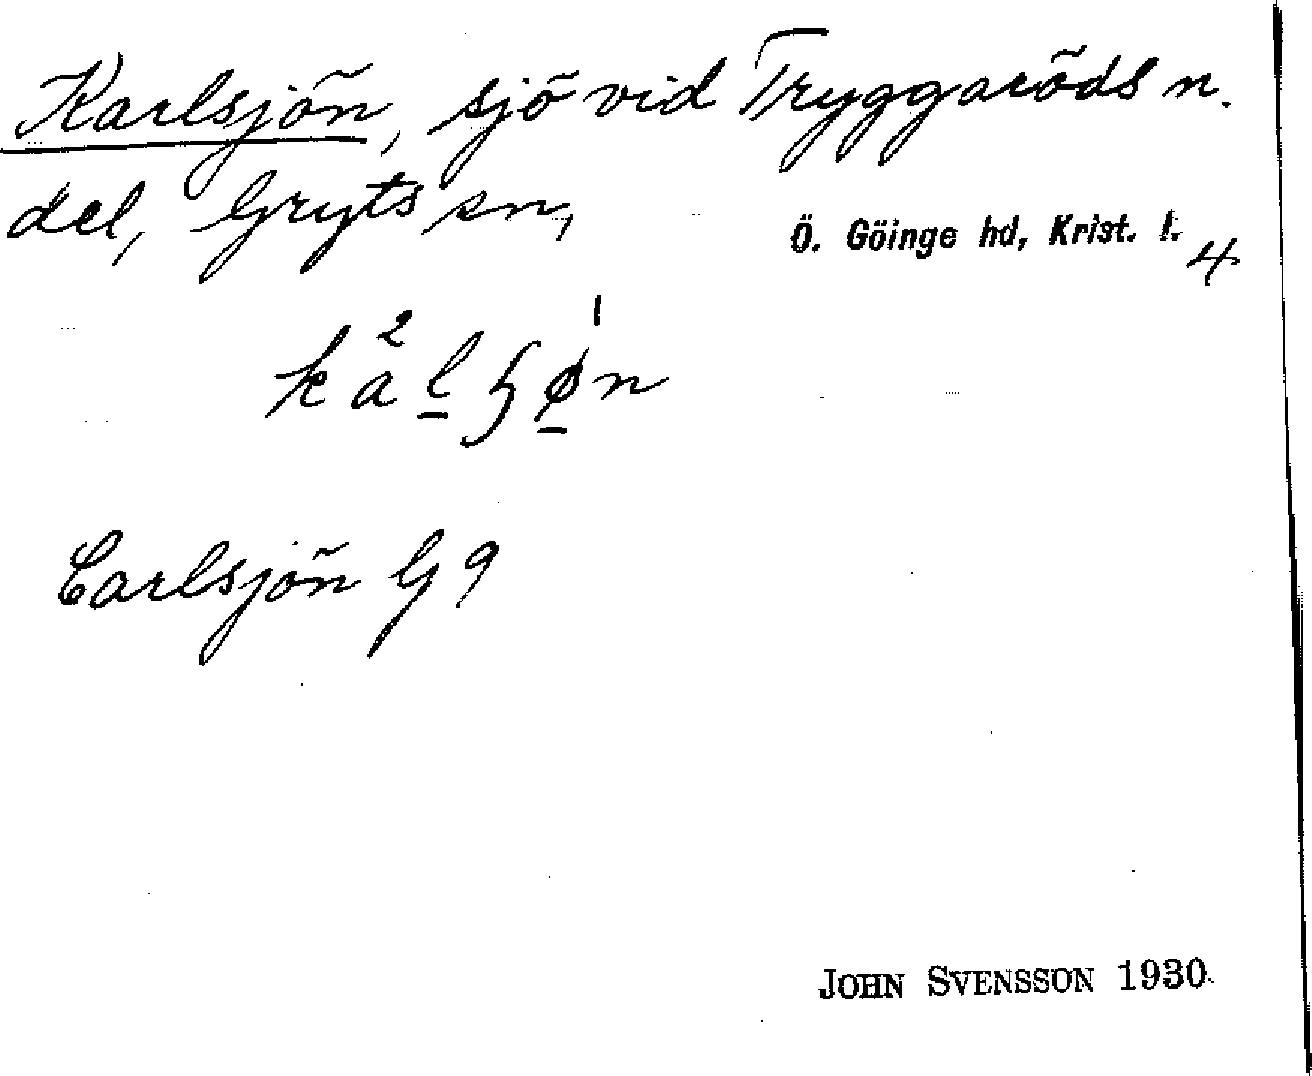 Karlsjön, sjö vid Tryggaröds n.
del, Gryts sn, Ö. Göinge hd, Krist. l. 4
Carlsjön G 9
JOHN SVENSSON 1930